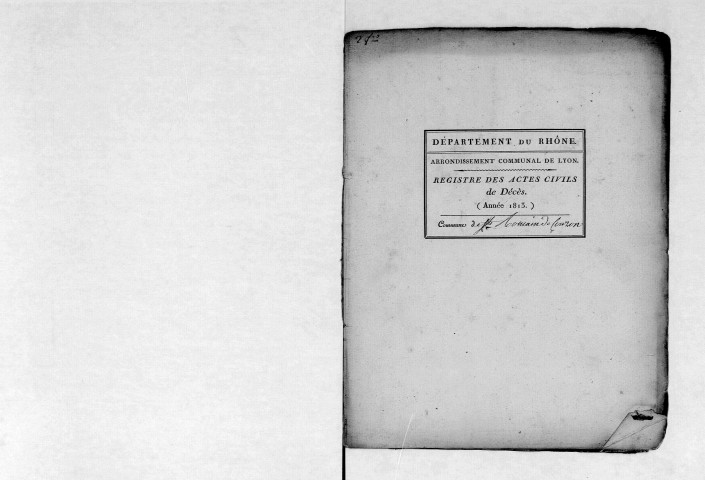 DÉPARTEMENT DU RHÔNE.
ARRONDISSEMENT COMMUNAL DE LYON.
REGISTRE DES ACTES CIVILS
de Décès.
( Année 1813. )
Commune de St Romain de Couzon